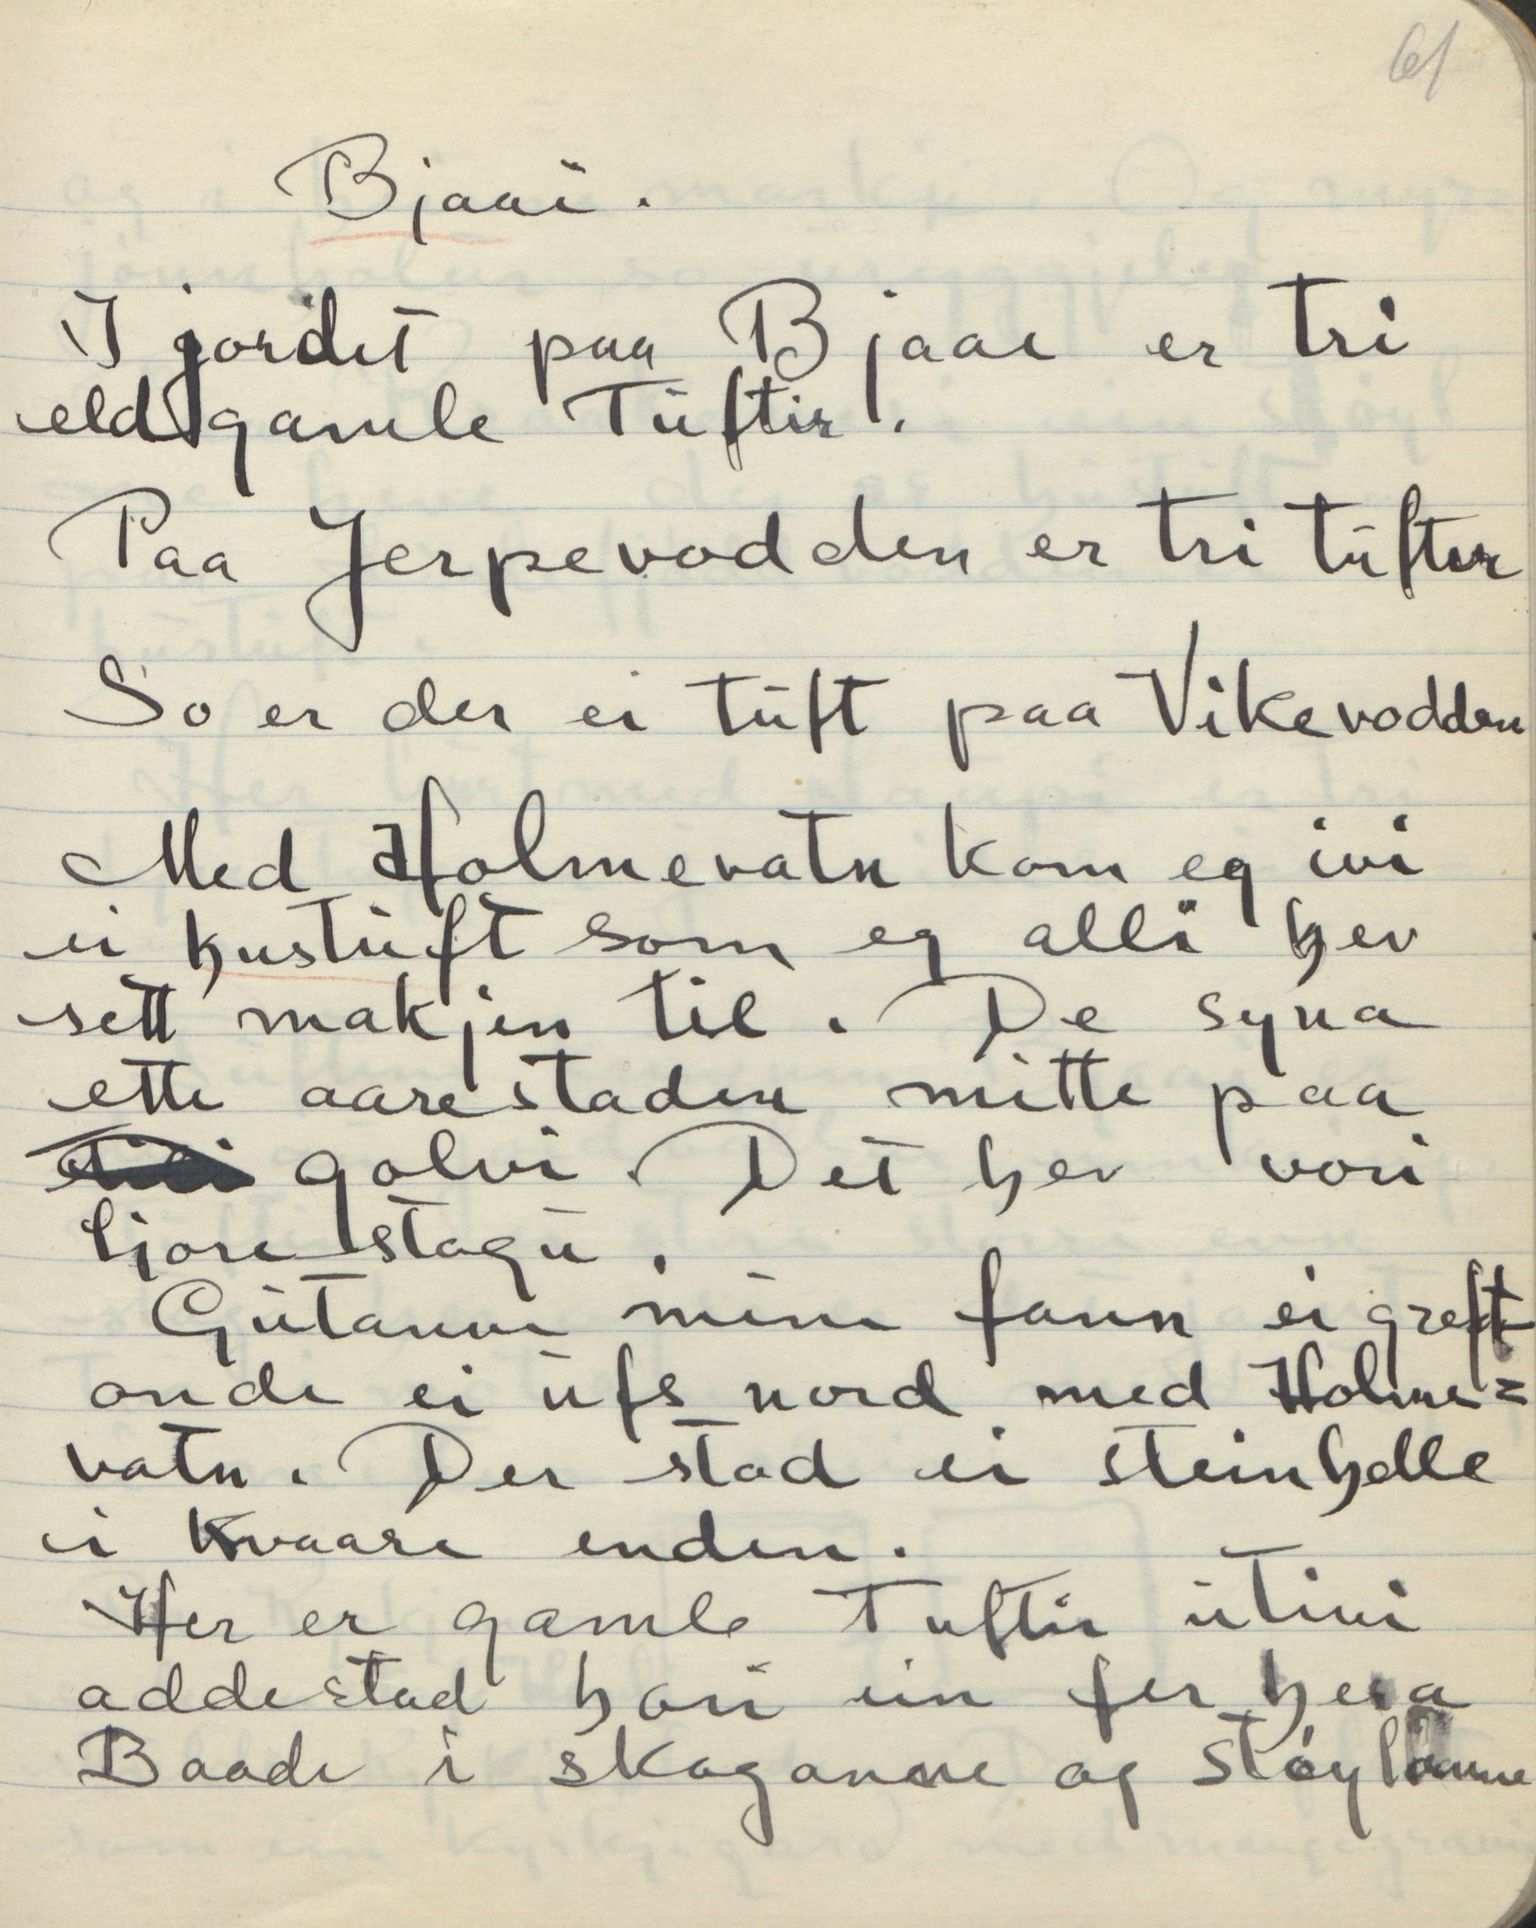 61
Bjaai.
I jordet paa Bjaae er tri
eldgamle Tuftir.
Paa Jerpevodden er tri tufter
So er der ei tuft paa Vikevodden
Med Holmevatn kom eg ivi
ei hustuft som eg alli hev
sett makjen til. De syna
ette aarestaden mitte paa
golvi. Det hev vori
ljorestogu.
Gutanne mine fann ei greft
onde ei ufs nord med Holme=
vatn. Der stod ei steinhelle
i kvaare enden.
Her er gamle Tuftir utivi
addestad hori ein fer hera
Baade i skoganne og støylanne